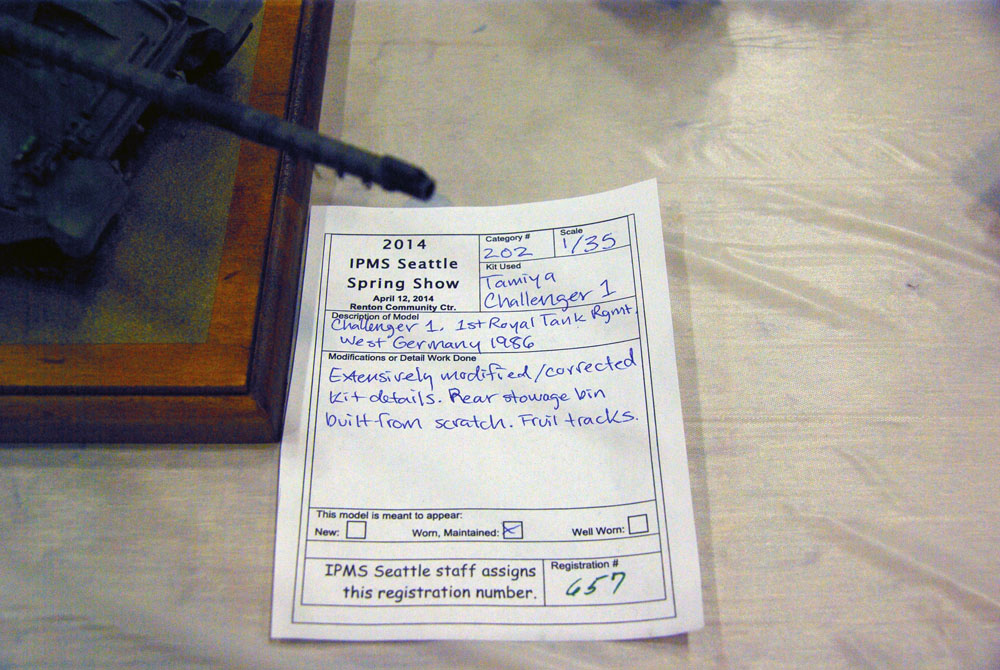 2014
IPMS Seattle
Spring Show
April 12, 2014
Renton Community Ctr.
Category #
202
Scale
1/35
Kit Used
Tamiya
Challenger 1
Description of Model
Challenger 1. 1st Royal Tank Rgmt.
West Germany 1986
Modifications or Detail Work Done
Extensively modified/corrected
kit details. Rear stowage bin
built from scratch. Fruil tracks.
This model is meant to appear:
New: Worn, Maintained: Well Worn:
IPMS Seattle staff assigns
this registration number.
Registration #
657